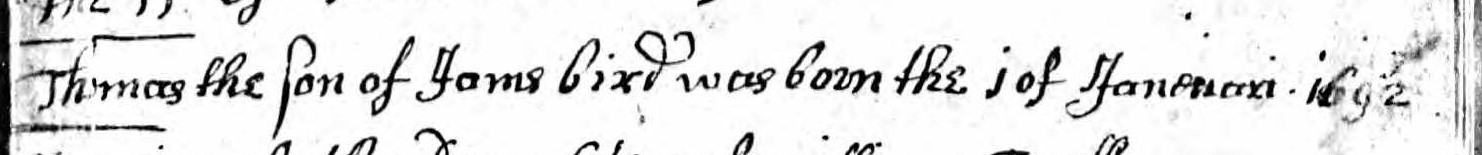 Thomas the son of Jams bird was born the 1 of Janeuari . 1692